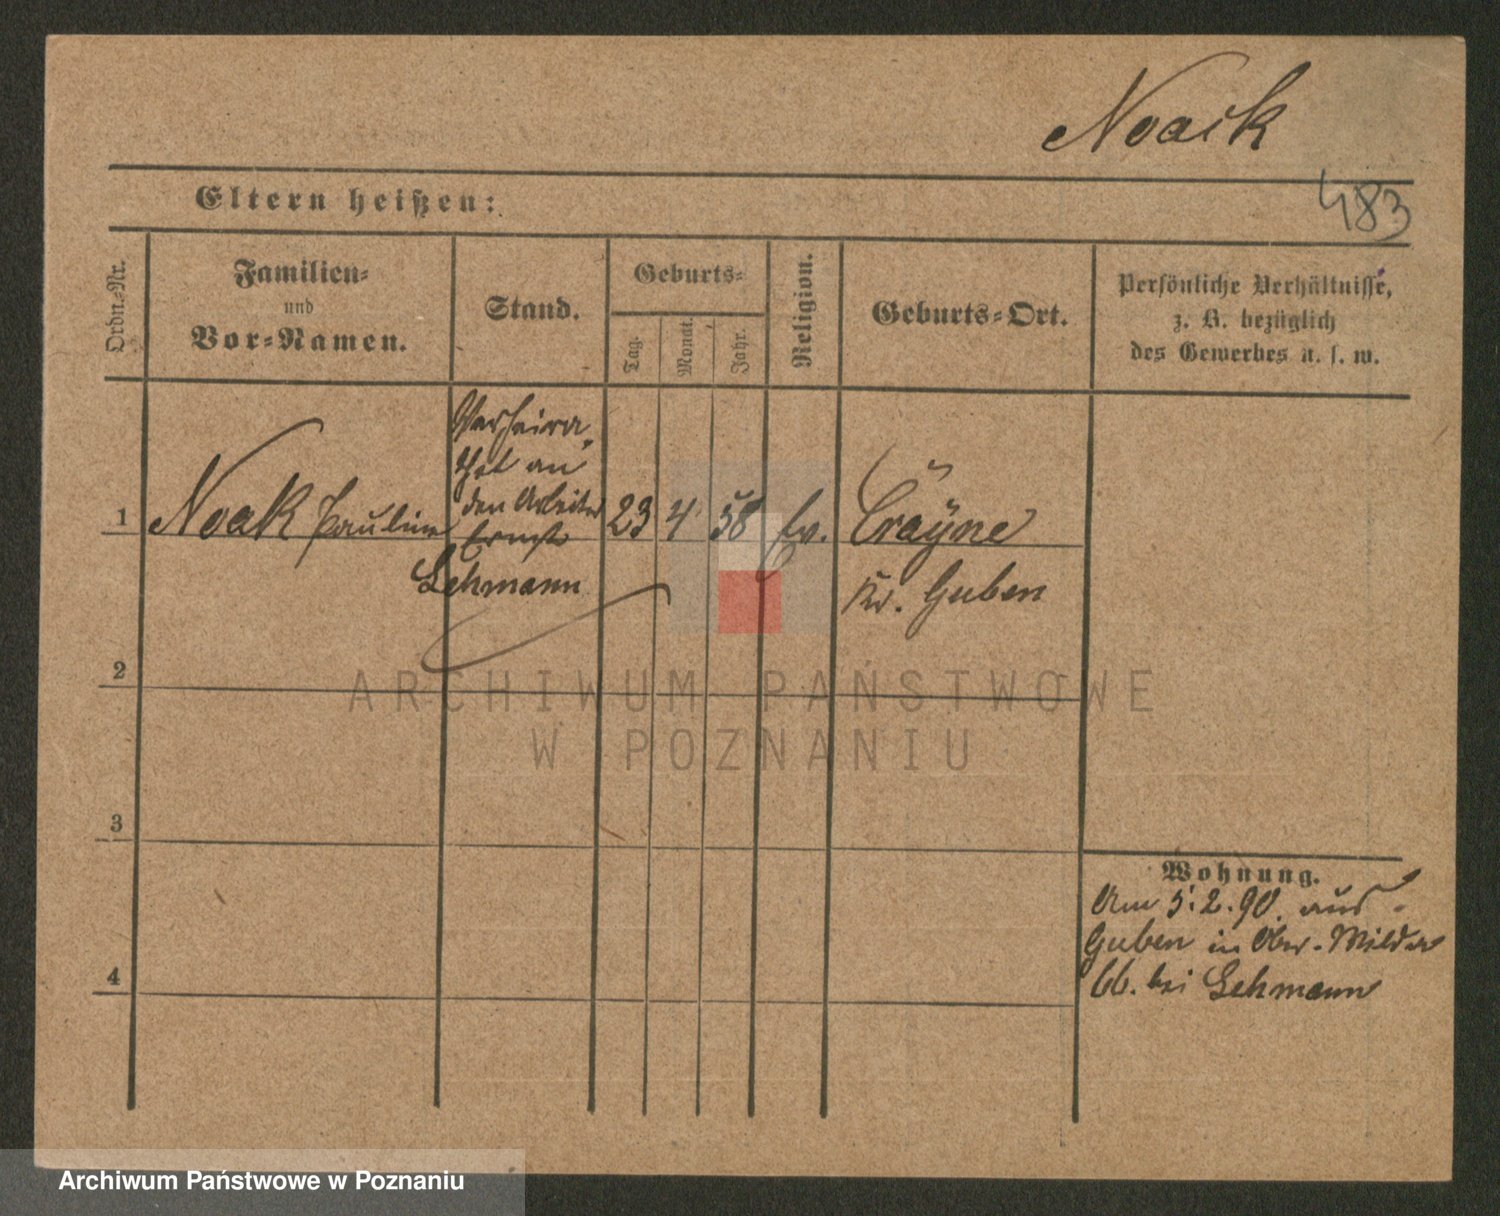 Noack
483
Eltern heißen:
Ordn.-Nr.
Familien-
und
Vor-Namen.
Stand.
Geburts-
Tag.
Monat.
Jahr.
Religion.
Geburts-Ort.
Persönliche Verhältnisse,
z. B. bezüglich
des Gewerbes u. s. w.
1
Noak Pauline
Verheira-
thet an
den Arbeiter
Ernst
Lehmann
23
4
58
Ev.
Crayne
Kr. Guben
2
3
4
Wohnung.
Am 5.2.90. aus
Guben in Ober-
66. bei Lehmann
ARCHIWUM PAŃSTWOWE
W POZNANIU
Archiwum Państwowe w Poznaniu